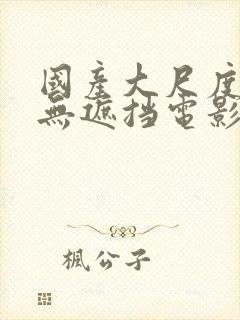 國產大尺度
無遮挡電影
楓公子